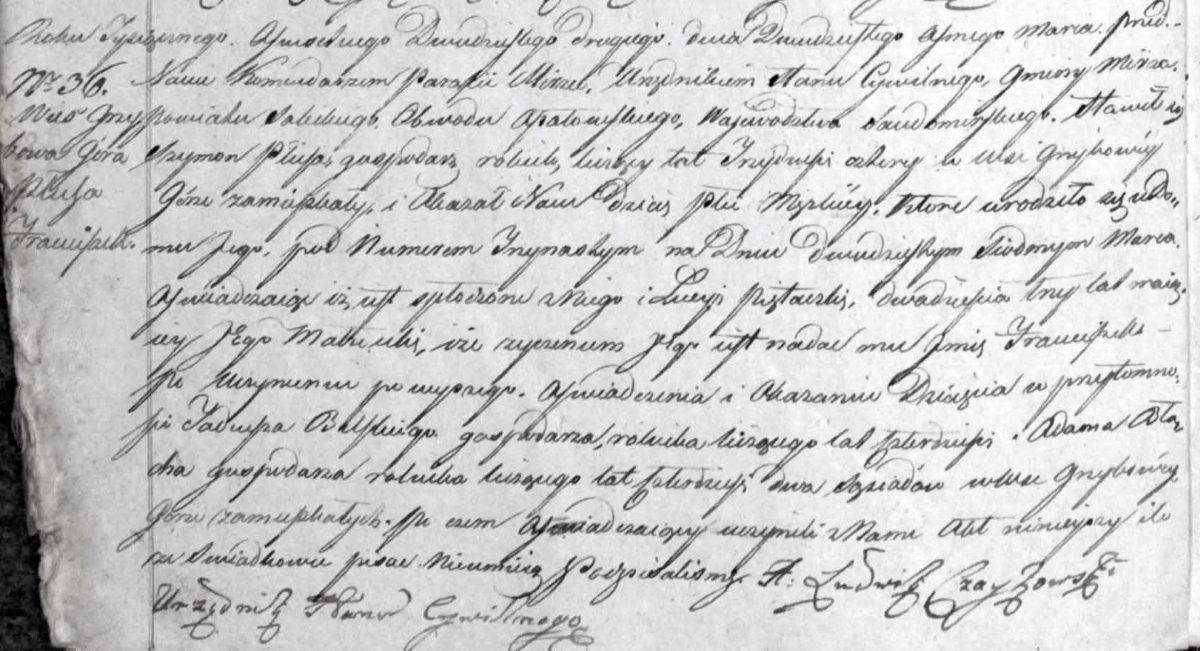 Roku Tysiącznego. Osmsetnego Dwudziestego drugiego. dnia Dwudziestego Osmego Marca. przed-
Nro 36. Nami Komendarzem Parafii Mirzec, Urzędnikiem Stanu Cywilnego, Gminy Mirza.
Wieś Grzy Powiatu Soleckiego, Obwodu Opatowskiego, Woiewodztwa Sandomirskiego. Stawił się
bowa Góra Szymon Płusa gospodarz rolnik, liczący lat Trzydzieści cztery w wsi Grzybowey
Płusa Górze zamieszkały, i Okazał Nam Dziecię Płci Męzkiey. Ktore urodziło się w Do-
Franciszek. mu Jego, pod Numerem Trzynastym na Dniu dwudziestym Siodmym Marca.
Oświadczaiąc iż iest spłodzone z Niego i Łucyi dwadzieścia trzy lat maią-
cey Jego Małżonki, i że życzeniem Jego iest nadać mu Jmię Franciszek
Po Uczynieniu powyższego. Oświadczenia i Okazaniu Dziecięcia w przytomno-
ści Tadeusza gospodarza, rolnika liczącego lat Czterdzieści. Adama
gospodarza rolnika liczącego lat Czterdzieści dwa Sąsiadów w Wsi Grzybowey
Górze zamieszkałych. Po czem Oświadczaiący uczynili z Nami Akt ninieyszy ile
że Swiadkowie pisać Nieumieią Podpisaliśmy. X. Ludwik Czaykowski
Urzędnik Stanu Cywilnego